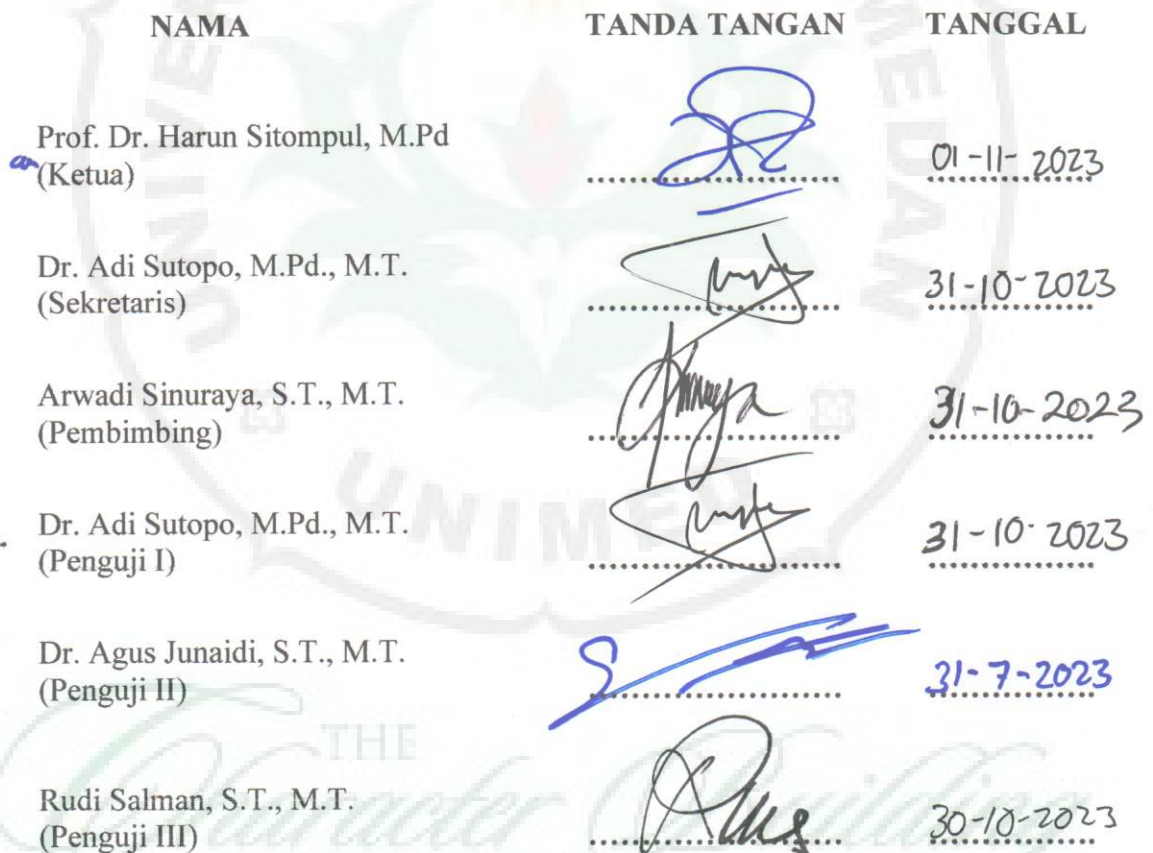 NAMA TANDA TANGAN TANGGAL
Prof. Dr. Harun Sitompul, M.Pd
an (Ketua) .................... 01-11-2023
Dr. Adi Sutopo, M.Pd., M.T.
(Sekretaris) .................... 31-10-2023
Arwadi Sinuraya, S.T., M.T.
(Pembimbing) .................... 31-10-2023
Dr. Adi Sutopo, M.Pd., M.T.
(Penguji I) .................... 31-10-2023
Dr. Agus Junaidi, S.T., M.T.
(Penguji II) .................... 31-7-2023
Rudi Salman, S.T., M.T.
(Penguji III) .................... 30-10-2023
UNIMED
THE
Character Building